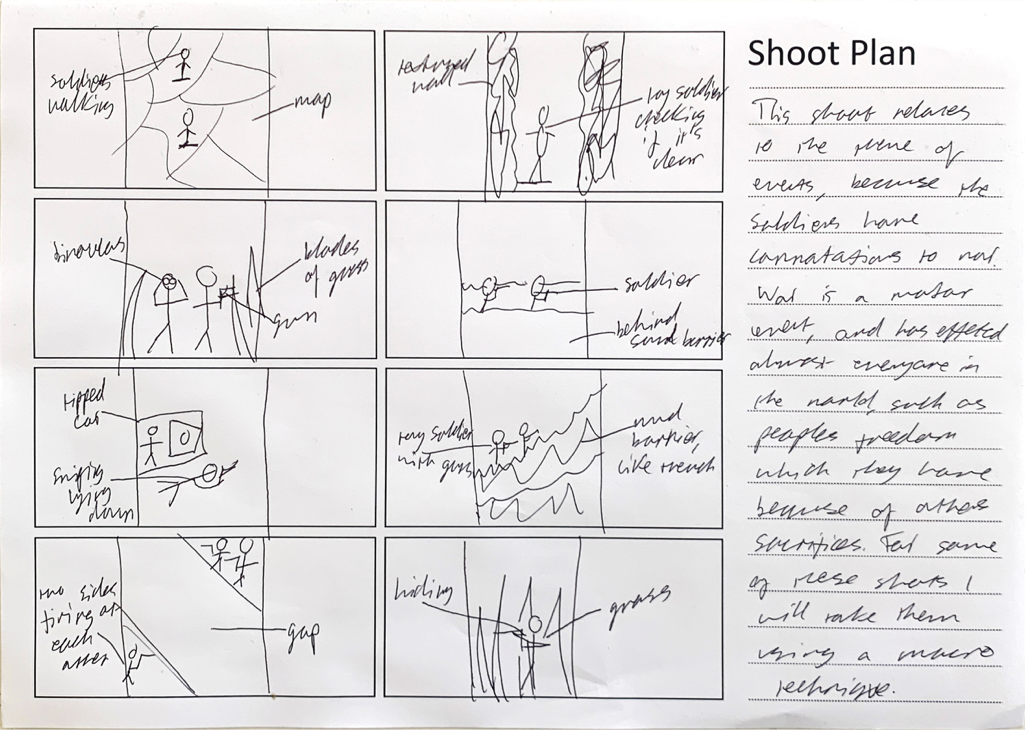 soldiers
walking
map
destroyed
wall
toy soldier
checking
if it's
clear
binoculars
blades
of grass
gun
soldier
behind
sand barrier
tipped
car
sniping
lying
down
toy soldier
with guns
mud
barrier,
like trench
two sides
firing at
each
other
gap
hiding
grass
Shoot Plan
This shoot relates
to the theme of
events, because the
soldiers have
connatations to war.
War is a major
event, and has effeted
almost everyone in
the world, such as
peoples freedom
which they have
because of others
sacrifices. For some
of these shots I
will take them
using a macro
technique.